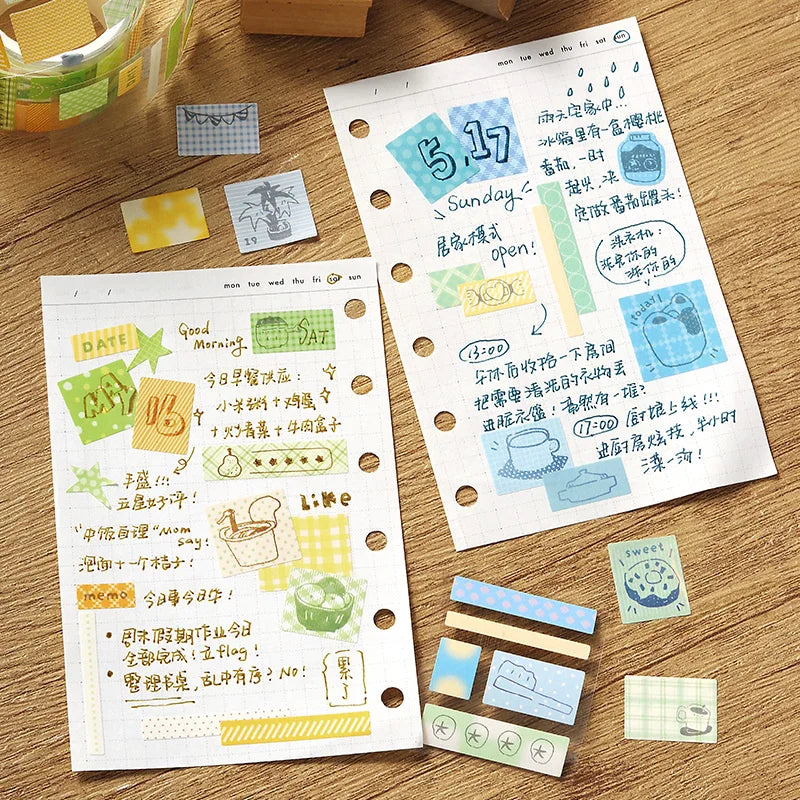 / /
mon tue wed thu fri sat sun
DATE
Good
Morning
SAT
MAY
16
今日早餐供应:
小米粥+鸡蛋
+炒青菜+牛肉盒子
丰盛!!!
五星好评!
Like
"中饭自理"Mom
say!
泡面+一个桔子!
memo
今日事今日作!
• 周末假期作业今日
全部完成!立flag!
• 整理书桌,乱中有序?NO!
累了
/ /
mon tue wed thu fri sat sun
5.17
Sunday
居家模式
open!
雨天宅家中...
冰箱里有一盒樱桃
番茄,一时
起兴,决
定做番茄罐头!
洗衣机:
你的
你的
today
13:00
午休后收拾一下房间
把需要清洗的衣物丢
进脏衣篓!竟然有一堆?
17:00
厨娘上线!!!
进厨房炫技,半小时
一汤!
19
sweet